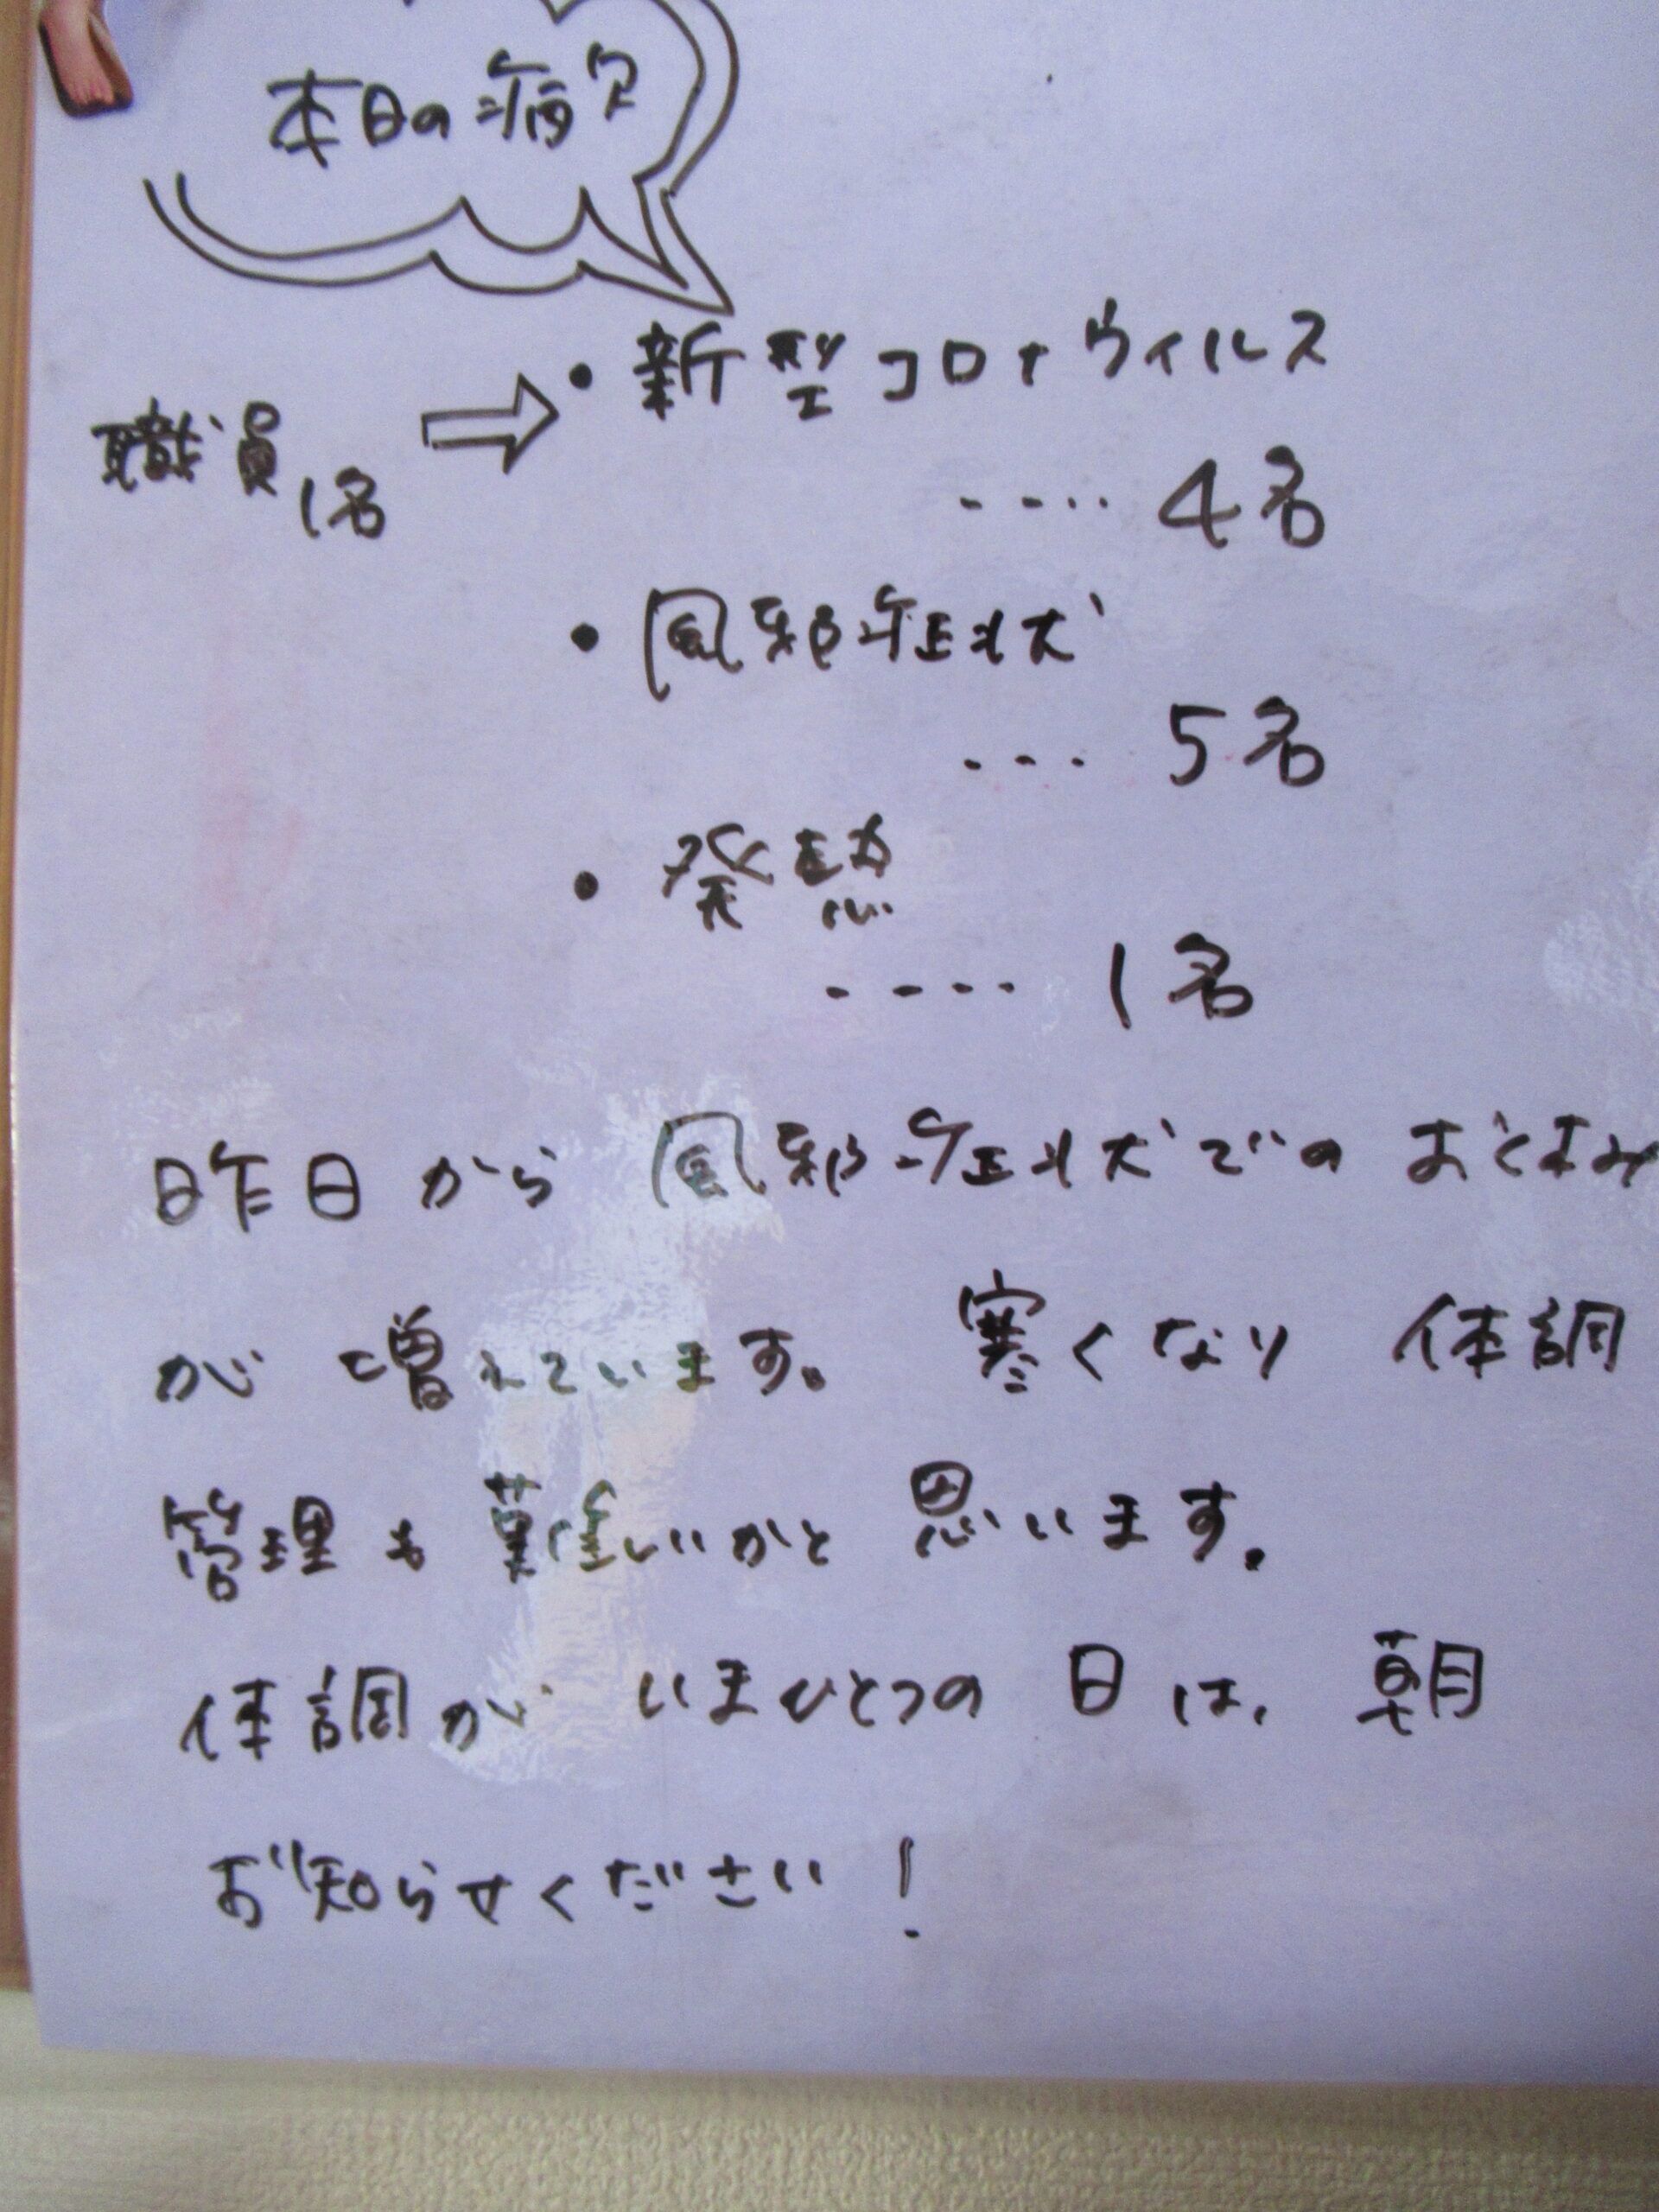 本日の病欠
・新型コロナウィルス
職員1名 ⇨
‥‥4名
・風邪症状
‥‥5名
・発熱
‥‥1名
昨日から 風邪症状でのおやすみ
が 増えています。 寒くなり 体調
管理も難しいかと 思います。
体調が いまひとつの 日は、朝
お知らせください!